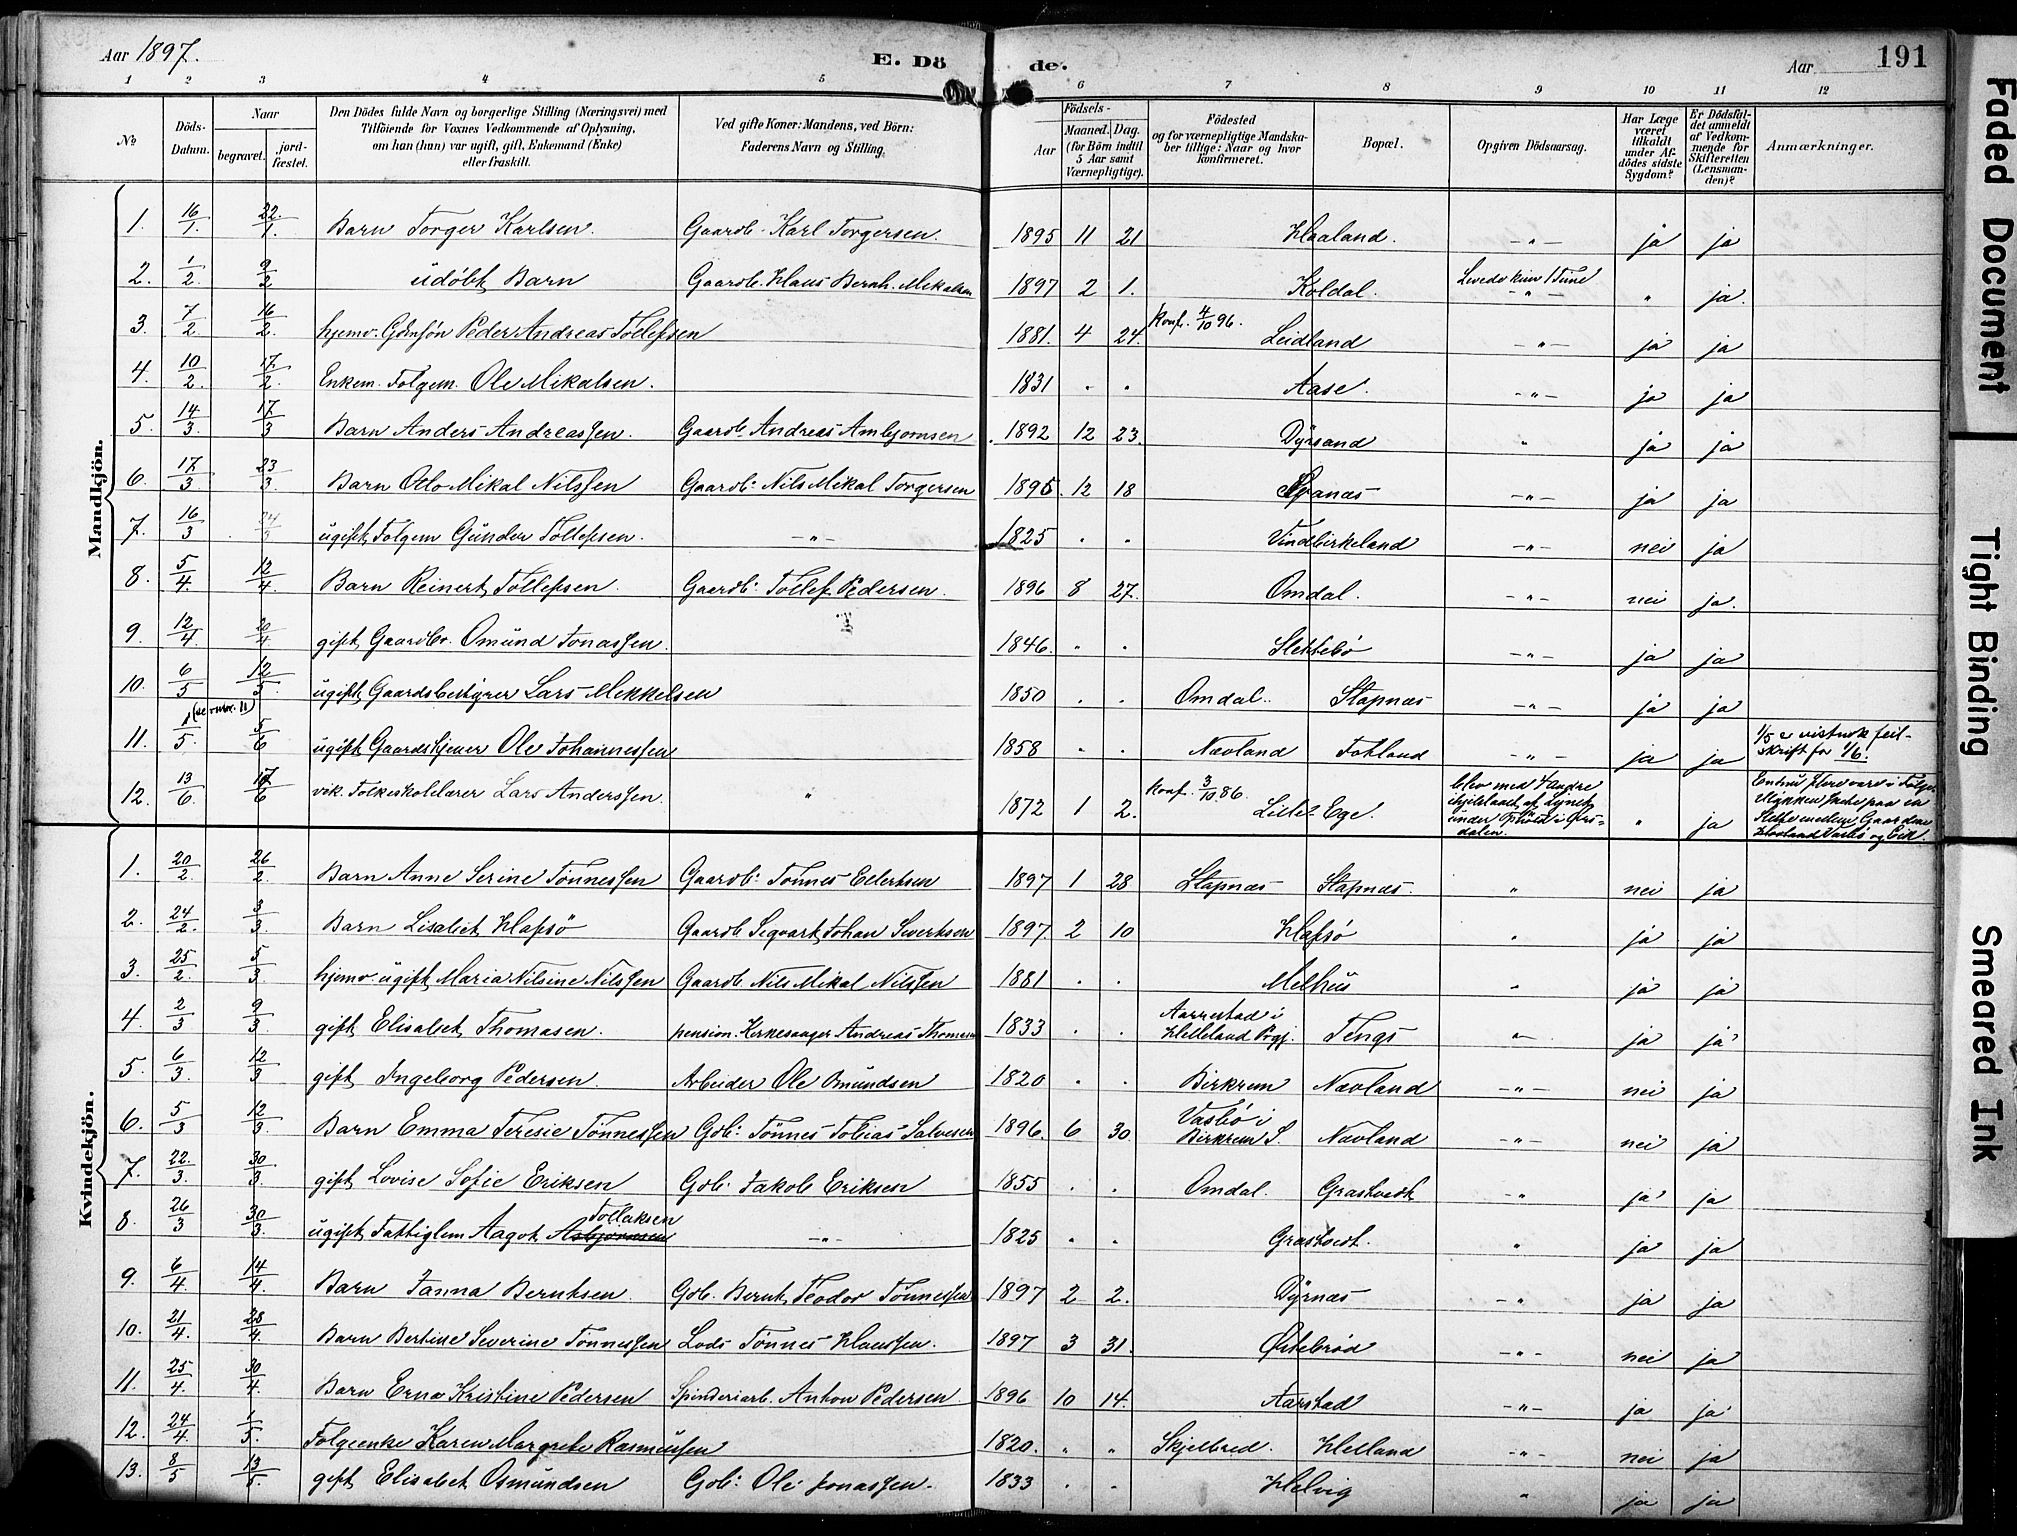 Aar 1897. E. Dö de. Aar 191
1 2 3 4 5 6 7 8 9 10 11 12
No Döds-Datum. Naar begravet. jord-fæstet. Den Dödes fulde Navn og borgerlige Stilling (Næringsvei) med Tilföiende for Voxnes Vedkommende af Oplysning, om han (hun) var ugift, gift, Enkemand (Enke) eller fraskilt. Ved gifte Koner: Mandens, ved Börn: Faderens Navn og Stilling. Födsels- Aar Maaned. Dag. (for Börn indtil 5 Aar samt Værnepligtige). Födested og for værnepligtige Mandska-ber tillige: Naar og hvor konfirmeret. Bopæl. Opgiven Dödsaarsag. Har Læge været tilkaldt under Af-dödes sidste Sygdom? Er Dödsfal-det anmeldt af Vedkom-mende for Skifteretten (Lensman-den)? Anmærkninger.
Mandkjön.
1. 16/1. 22./1. Barn Torger Karlsen. Gaardb. Karl Torgersen. 1895 11 21 Haaland. -"- ja ja
2. 1/2. 9/2 udöbt Barn Gaardb. Klaus Bernh. Mikalsen 1897 2 1. Koldal. Levede kun 1 Time -"- " ja.
3. 7/2. 16/2. hjemv. Gdmsön Peder Andreas Tollefsen 1881. 4 24. Konf. 4/10 96. Leidland -"- ja ja
4. 10/2. 17/2. Enkem. Folgem. Ole Mikalsen. 1831 " " Aase. -"- ja ja
5. 14/3. 17/3 Barn Anders Andreassen. Gaardb. Andreas Ambjornsen 1892 12 23. Dyrsand " ja ja
6. 17/3. 23/3. Barn Olo Mikal Nilssen Gaardb: Nils Mikal Torgersen 1895. 12 18 -"- ja ja
7. 16/3 24/3 ugift Folgem Gunder Tollefsen. -"- 1825 " " Vindbirkeland -"- nei ja
8. 5/4. 12/4. Barn Reinert Tollefsen. Gaardb: Tollef Pedersen. 1896 8 27. Omdal. -"- nei ja.
9. 12/4 20/4. gift Gaardbr. Omund Jonassen. 1846. " " Slettebö -"- ja ja
10. 6/5 12/5. ugift Gaardsbestyrer Lars Mekkelsen 1850 . . Omdal. Stapnæs -"- ja ja
11. 1/5. (se anm. 11) 5/6 ugift Gaardstjener Ole Johannessen 1858 " " Nævland Tokland -"- ja ja 1/5 er vistnok feil-skrift for 1/6.
12. 13/6. 17/6 vik. Folkeskolelærer Lars Anderssen. " 1872 1 2. Konf. 3/10 86. Lille-Ege. blev med 4 andre ihjelslaaet af Lynet under Ophold i Örs-dalen. " ja
Kvindekjön.
1. 20/2. 26/2. Barn Anne Serine Tönnessen Gaardb: Tönnes Edertsen 1897 1 28 Stapnæs Stapnæs. " nei ja
2. 24/2. 3/3. Barn Lisabet Hafsö Gaardb Sigvart Johan Sivertsen 1897. 2 10 Hafsö " ja ja
3. 25/2. 5/3. hjemv. ugift Maria Nilsine Nilssen Gaardb. Nils Mikal Nilssen 1881 . . Melhus " ja ja
4. 2/3 9/3. gift Elisabet Thomasen. pension. Kirkesanger Andreas Thomasen 1833 . . Aarrestad i Helleland Prgj. Tengs "- ja ja
5. 6/3 12/3 gift Ingeborg Pedersen. Arbeider Ole Omundsen 1820 . . Birkrem Nævland -"- nei ja
6. 5/3 12/3. Barn Emma Teresie Tönnessen Gdb: Tönnes Tobias Salvesen 1896. 6 30. Vasbö i Birkrem S. Nævland -"- nei ja
7. 22./3. 30/3 gift Lovise Sofie Eriksen Gdb. Jakob Eriksen 1855 . . Omdal. Grastvedt -" ja ja
8. 26/3 30/3. ugift Fattiglem Aagot Asbjörnsen Tollaksen -"- 1825 " " Grastvedt. " ja ja
9. 6/4 14/4. Barn Janna Berntsen. Gdb. Bernt Teodor Tönnessen 1897 2 2. Dyrnæs -" ja ja
10. 21/4. 28/4 Barn Bertine Severine Tönnessen Lods Tönnes Klaussen. 1897 3 31. Östebröd -"- nei ja
11. 25/4. 30/4. Barn Erna Kristine Pedersen Spinderiarb. Anton Pedersen 1896 10 14. Aarstad -"- ja ja
12. 24/4. 1/5. Folgeenke Karen Margrete Rasmussen 1820. " " Skjelbred. Helland -"- nei ja
13. 8/5 13/5. gift Elisabet Osmundsen Gdb: Ole Jonassen. 1833 . . Helvig " ja ja
Faded Document
Tight Binding
Smeared Ink